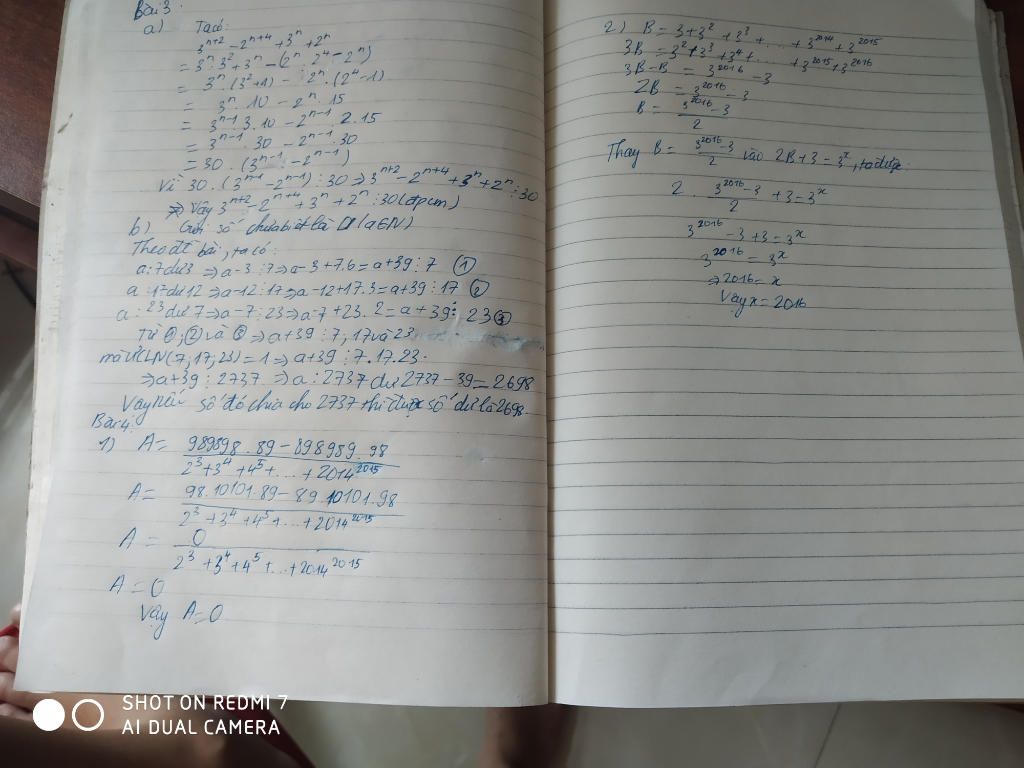 Bài 3
a) Ta có:
3^{n+2} - 2^{n+4} + 3^n + 2^n
= 3^n . 3^2 + 3^n - (2^n . 2^4 - 2^n)
= 3^n . (3^2 + 1) - 2^n . (2^4 - 1)
= 3^n . 10 - 2^n . 15
= 3^{n-1} 3 . 10 - 2^{n-1} 2 . 15
= 3^{n-1} . 30 - 2^{n-1} . 30
= 30 . (3^{n-1} - 2^{n-1})
Vì 30 . (3^{n-1} - 2^{n-1}) ⋮ 30 ⇒ 3^{n+2} - 2^{n+4} + 3^n + 2^n ⋮ 30
⇒ Vậy 3^{n+2} - 2^{n+4} + 3^n + 2^n ⋮ 30 (đpcm)
b) Gọi số chưa biết là a (a∈N)
Theo đề bài, ta có:
a : 7 dư 3 ⇒ a-3 ⋮ 7 ⇒ a-3+7.6 = a+39 ⋮ 7 ①
a : 17 dư 12 ⇒ a-12 ⋮ 17 ⇒ a-12+17.3 = a+39 ⋮ 17 ②
a : 23 dư 7 ⇒ a-7 ⋮ 23 ⇒ a-7+23.2 = a+39 ⋮ 23 ③
Từ ①, ② và ③ ⇒ a+39 ⋮ 7, 17 và 23
mà ƯCLN(7, 17, 23) = 1 ⇒ a+39 ⋮ 7.17.23.
⇒ a+39 ⋮ 2737 ⇒ a : 2737 dư 2737 - 39 = 2698
Vậy nếu số đó chia cho 2737 thì được số dư là 2698
Bài 4
1) A = \frac{989898 . 89 - 898989 . 98}{2^3 + 3^4 + 4^5 + ... + 2014^{2015}}
A = \frac{98.10101.89 - 89.10101.98}{2^3 + 3^4 + 4^5 + ... + 2014^{2015}}
A = \frac{0}{2^3 + 3^4 + 4^5 + ... + 2014^{2015}}
A = 0
Vậy A = 0
2) B = 3 + 3^2 + 3^3 + ... + 3^{2014} + 3^{2015}
3B = 3^2 + 3^3 + 3^4 + ... + 3^{2015} + 3^{2016}
3B - B = 3^{2016} - 3
2B = 3^{2016} - 3
B = \frac{3^{2016} - 3}{2}
Thay B = \frac{3^{2016} - 3}{2} vào 2B + 3 = 3^x, ta được:
2 . \frac{3^{2016} - 3}{2} + 3 = 3^x
3^{2016} - 3 + 3 = 3^x
3^{2016} = 3^x
⇒ 2016 = x
Vậy x = 2016
SHOT ON REDMI 7
AI DUAL CAMERA